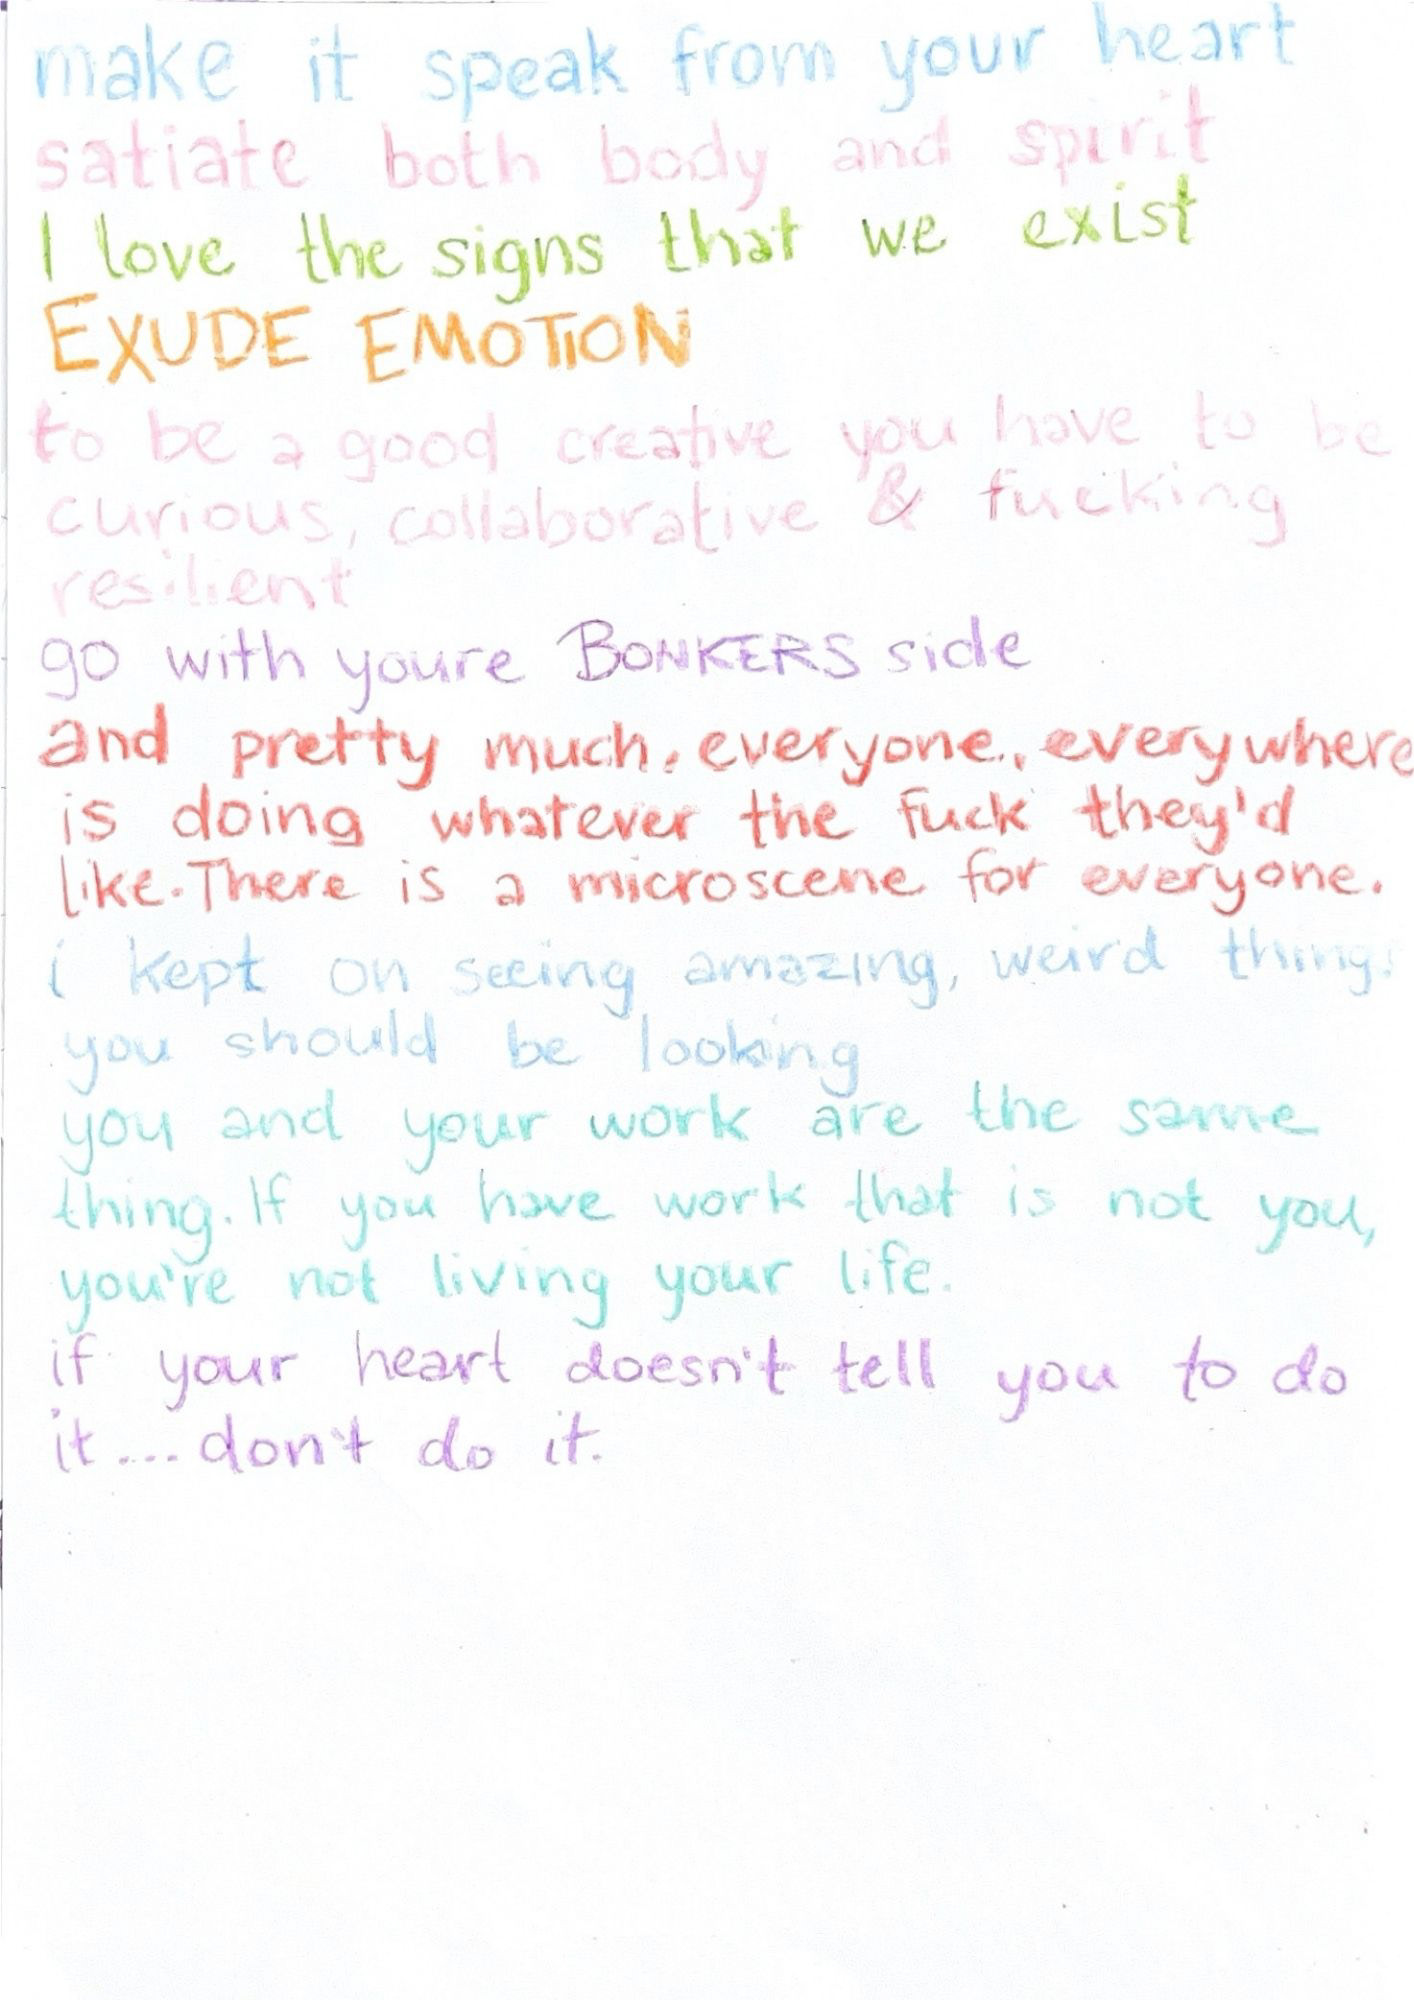 make it speak from your heart
satiate both body and spirit
I love the signs that we exist
EXUDE EMOTION
to be a good creative you have to be
curious, collaborative & fucking
resilient
go with youre BONKERS side
and pretty much, everyone, everywhere
is doing whatever the fuck they'd
like. There is a microscene for everyone.
i kept on seeing amazing, weird things
you should be looking
you and your work are the same
thing. If you have work that is not you,
you're not living your life.
if your heart doesn't tell you to do
it... don't do it.